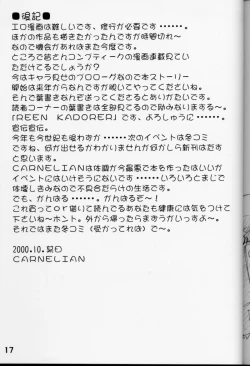 ■後記■
エロ漫画は難しいです、修行が必要です……。
ほかの作品も描きたかったんですが時間切れ〜
なので機会があればまた今度です。
ところで皆さんコンプティークの漫画連載見てい
ただけてるでしょうか?
今はキャラ見せのプロローグなので本ストーリー
開始は来年からなんですが良いですやってくださいね。
そんで葉書きなんぞ送ってくださるとありがたいです。
読者コーナーの葉書きは全部見てるので励みになりまする〜。
「REEN KADORER」です、よろしゅうに……。
宣伝宣伝。
今年も今世紀も終わりますが……次のイベントは冬コミ
ですね、伯が出せるかわかりませんが伯がしから新刊はだす
と思います。
CARNELIANは体調が今最悪で本も作ったはいいが
イベントにはいけそうにないです……いろいろとまじで
体壊しまくなので不具合だらけの生活です。
でも、がんばる……。がんばるぞ〜!
これ買ってor借りて読んでるあなたも健康には気をつけて
下さいね〜ホント。外から帰ったらまずうがいっすよ〜。
それではまた冬コミ(受かってれば)で〜。
2000.10.某日
CARNELIAN
17